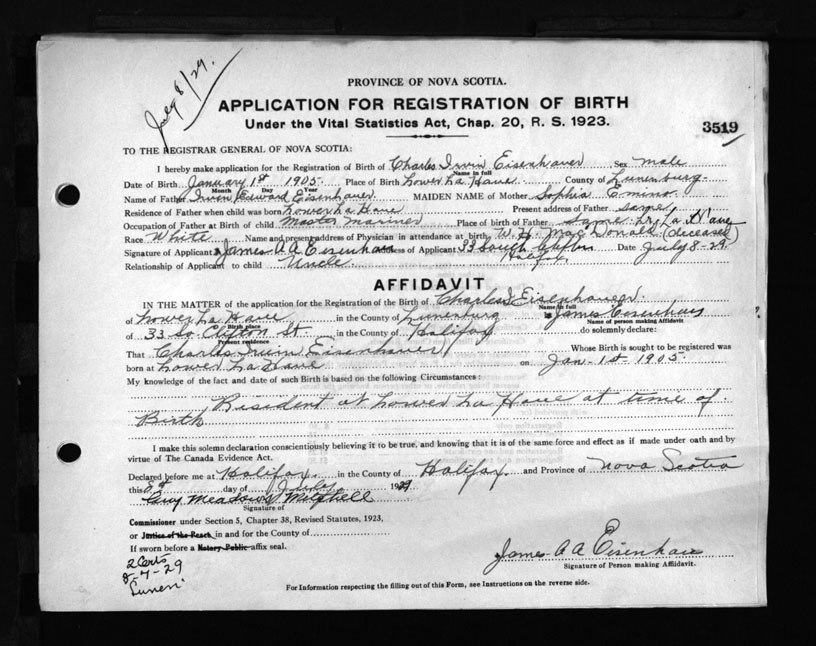 July 8/29.
PROVINCE OF NOVA SCOTIA.
APPLICATION FOR REGISTRATION OF BIRTH
Under the Vital Statistics Act, Chap. 20, R. S. 1923.
3519
TO THE REGISTRAR GENERAL OF NOVA SCOTIA:
I hereby make application for the Registration of Birth of Charles Irvin Eisenhauer Sex male
Name in full
Date of Birth January 1st 1905 Place of Birth Lower La Have County of Lunenburg
Month Day Year
Name of Father Irvin Edward Eisenhauer MAIDEN NAME of Mother Sophia
Residence of Father when child was born Lower La Have Present address of Father Same
Occupation of Father at Birth of child Master Mariner Place of birth of Father Same Dr, La Have
Race White Name and present address of Physician in attendance at birth W. H. Mac Donald (deceased)
Signature of Applicant James A A Eisenhaur Address of Applicant 33 South Clifton Date July 8-29
Halifax
Relationship of Applicant to child Uncle
AFFIDAVIT
IN THE MATTER of the application for the Registration of the Birth of Charles I Eisenhauer
Name in full
of Lower La Have in the County of Lunenburg James Eisenhaur
Birth place Name of person making Affidavit
of 33 So Clifton St in the County of Halifax do solemnly declare:
Present residence
That Charles Irvin Eisenhauer Whose Birth is sought to be registered was
born at Lower La Have on Jan 1st 1905
My knowledge of the fact and date of such Birth is based on the following Circumstances:
Resident at Lower La Have at time of
Birth
I make this solemn declaration conscientiously believing it to be true, and knowing that it is of the same force and effect as if made under oath and by
virtue of The Canada Evidence Act.
Declared before me at Halifax in the County of Halifax and Province of Nova Scotia
this 8th day of July 1929
Guy Mitchell
Signature of
Commissioner under Section 5, Chapter 38, Revised Statutes, 1923,
or Justice of the Peace in and for the County of
If sworn before a Notary Public affix seal.
2 Certs
8-7-29
Lunen.
James A A Eisenhaur
Signature of Person making Affidavit.
For Information respecting the filling out of this Form, see Instructions on the reverse side.